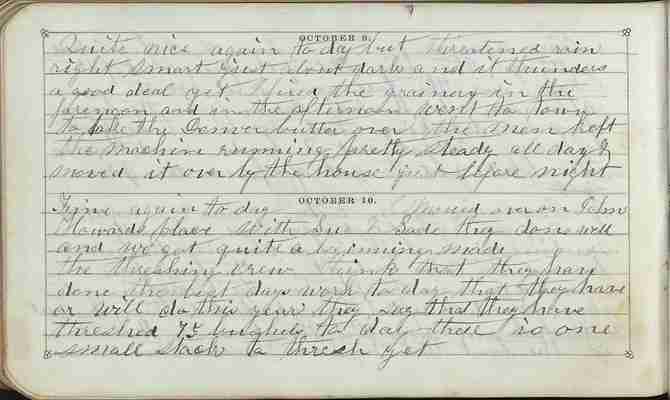 OCTOBER 9.
Quite nice again to day but threatened rain
right smart just about dark and it thunders
a good deal yet fixed the grainery in the
forenoon and in the afternoon went to town
to take the butter over the men kept
the machine running pretty steady all day &
moved it over by the house just before night
OCTOBER 10.
Fine again to day Plowed over on John
Howards place with and they done well
and we got quite a beginning made
the threshing crew think that they have
done the best days work to day that they have
or will do this year they say that they have
threshed 75 bushels to day there is one
small stack to thresh yet